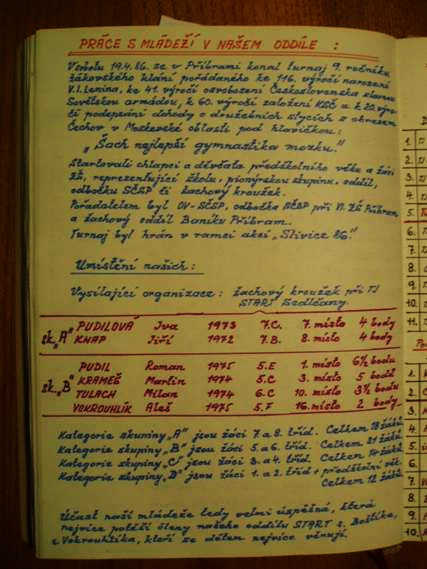 PRÁCE S MLÁDEŽÍ V NAŠEM ODDÍLE :
V sobotu 19.4.86 se v Příbrami konal turnaj 9. ročníku
žákovského klání pořádaného ke 116. výročí narození
V.I. Lenina, ke 41. výročí osvobození Československa slavnou
Sovětskou armádou, k 60. výročí založení KSČ a k 20. výro-
čí podepsání dohody o družebních stycích s okresem
Čechov v Moskevské oblasti pod hlavičkou:
„Šach nejlepší gymnastika mozku."
Startovali chlapci a děvčata předškolního věku a žáci
ZŠ, reprezentující školu, pionýrskou skupinu, oddíl,
odbočku SČSP či šachový kroužek.
Pořadatelem byl OV-SČSP, odbočka SČSP při VI. ZŠ Příbram
a šachový oddíl Baníku Příbram.
Turnaj byl hrán v rámci akcí „Slivice 86."
Umístění našich :
Vysílající organizace : šachový kroužek při TJ
START Sedlčany.
sk. „A" PUDILOVÁ Iva 1973 7.C. 7. místo 4 body
KNAP Jiří 1972 7.B. 8. místo 4 body
sk. „B" PUDIL Roman 1975 5.E 1. místo 6½ bodu
KRAMEŠ Martin 1974 5.C 3. místo 5 bodů
TULACH Milan 1974 6.C 10. místo 3½ bodu
VOKROUHLÍK Aleš 1975 5.F 16. místo 2 body
Kategorie skupiny „A" jsou žáci 7. a 8. tříd. Celkem 18 žáků
Kategorie skupiny „B" jsou žáci 5. a 6. tříd. Celkem 21 žáků
Kategorie skupiny „C" jsou žáci 3. a 4. tříd. Celkem 14 žáků
Kategorie skupiny „D" jsou žáci 1. a 2. tříd + předškolní věk.
Celkem 12 žáků.
Účast naší mládeže tedy velmi úspěšná, která
nejvíce potěší členy našeho oddílu START s. Boštíka,
s. Vokrouhlíka, kteří se dětem nejvíce věnují.